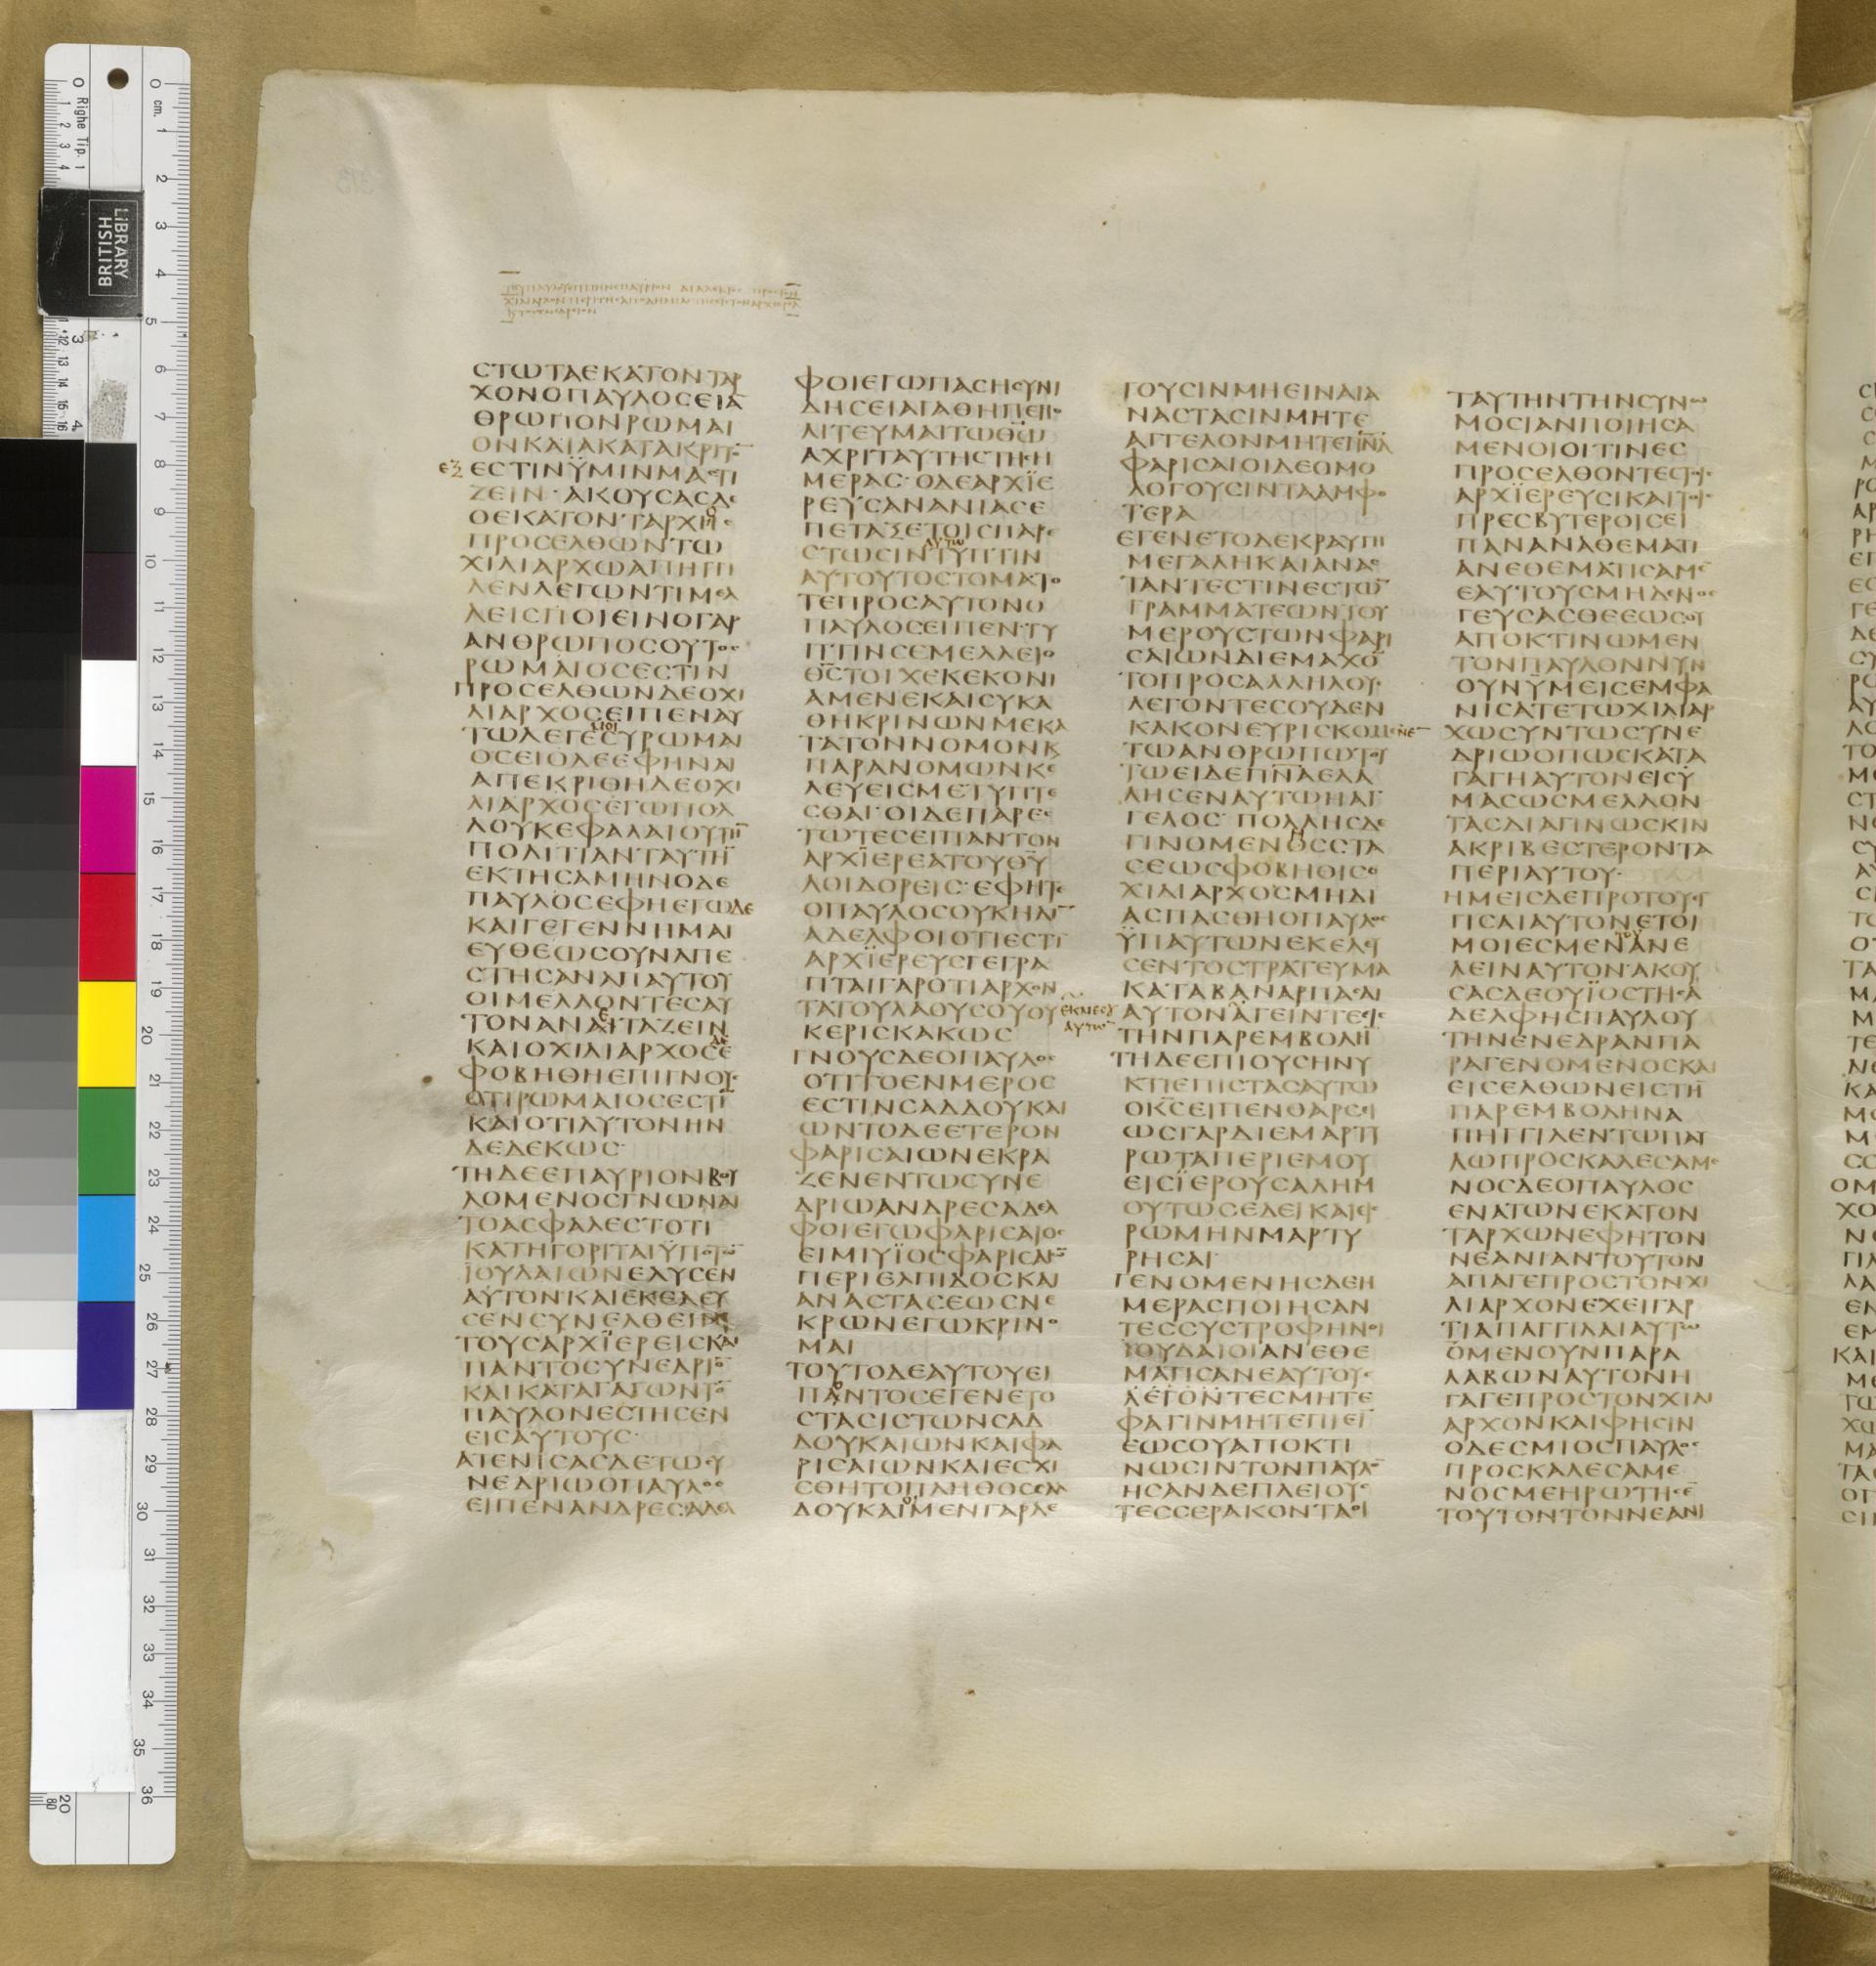 ϹΤΩΤΑΕΚΑΤΟΝΤΑΡ
ΧΟΝΟΠΑΥΛΟϹΕΙΑ
ΘΡΩΠΟΝΡΩΜΑΙ
ΟΝΚΑΙΑΚΑΤΑΚΡΙΤΟ̅
ΕΞ ΕϹΤΙΝΫΜΙΝΜΑϹΤΙ
ΖΕΙΝ· ΑΚΟΥϹΑϹΔΕ
ΟΕΚΑΤΟΝΤΑΡΧΗϹ
ΠΡΟϹΕΛΘΩΝΤΩ
ΧΙΛΙΑΡΧΩΑΠΗΓΓΙ
ΛΕΝΛΕΓΩΝΤΙΜΕΛ
ΛΕΙϹΠΟΙΕΙΝΟΓΑΡ
ΑΝΘΡΩΠΟϹΟΥΤΟϹ
ΡΩΜΑΙΟϹΕϹΤΙΝ
ΠΡΟϹΕΛΘΩΝΔΕΟΧΙ
ΛΙΑΡΧΟϹΕΙΠΕΝΑΥ
ΜΟΙ
ΤΩΛΕΓΕϹΥΡΩΜΑΙ
ΟϹΕΙΟΔΕΕΦΗΝΑΙ
ΑΠΕΚΡΙΘΗΔΕΟΧΙ
ΛΙΑΡΧΟϹΕΓΩΠΟΛ
ΛΟΥΚΕΦΑΛΑΙΟΥΤΗ̅
ΠΟΛΙΤΙΑΝΤΑΥΤΗ̅
ΕΚΤΗϹΑΜΗΝΟΔΕ
ΠΑΥΛΟϹΕΦΗΕΓΩΔΕ
ΚΑΙΓΕΓΕΝΝΗΜΑΙ
ΕΥΘΕΩϹΟΥΝΑΠΕ
ϹΤΗϹΑΝΑΠΑΥΤΟΥ
ΟΙΜΕΛΛΟΝΤΕϹΑΥ
Ε
ΤΟΝΑΝΑΙΤΑΖΕΙΝ
ΔΕ
ΚΑΙΟΧΙΛΙΑΡΧΟϹΕ
ΦΟΒΗΘΗΕΠΙΓΝΟΥϹ
ΟΤΙΡΩΜΑΙΟϹΕϹΤΙ̅
ΚΑΙΟΤΙΑΥΤΟΝΗΝ
ΔΕΔΕΚΩϹ·
ΤΗΔΕΕΠΑΥΡΙΟΝΒΟΥ
ΛΟΜΕΝΟϹΓΝΩΝΑΙ
ΤΟΑϹΦΑΛΕϹΤΟΤΙ
ΚΑΤΗΓΟΡΙΤΑΙΫΠΟΤΩ̅
ΪΟΥΔΑΙΩΝΕΛΥϹΕΝ
ΑΥΤΟΝΚΑΙΕΚΕΛΕΥ
ϹΕΝϹΥΝΕΛΘΕΙΝ
ΤΟΥϹΑΡΧΪΕΡΕΙϹΚΑΙ
ΠΑΝΤΟϹΥΝΕΔΡΙΟ̅
ΚΑΙΚΑΤΑΓΑΓΩΝΤΟ̅
ΠΑΥΛΟΝΕϹΤΗϹΕΝ
ΕΙϹΑΥΤΟΥϹ·
ΑΤΕΝΙϹΑϹΔΕΤΩϹΥ
ΝΕΔΡΙΩΟΠΑΥΛΟϹ
ΕΙΠΕΝΑΝΔΡΕϹΑΔΕΛ
ΦΟΙΕΓΩΠΑϹΗϹΥΝΙ
ΔΗϹΕΙΑΓΑΘΗΠΕΠΟ
ΛΙΤΕΥΜΑΙΤΩΘ̅Ω̅
ΑΧΡΙΤΑΥΤΗϹΤΗϹΗ
ΜΕΡΑϹ· ΟΔΕΑΡΧΪΕ
ΡΕΥϹΑΝΑΝΙΑϹΕ
ΠΕΤΑΞΕΤΟΙϹΠΑΡΕ
ΑΥΤΩ
ϹΤΩϹΙΝΤΥΠΤΙΝ
ΑΥΤΟΥΤΟϹΤΟΜΑΤΟ
ΤΕΠΡΟϹΑΥΤΟΝΟ
ΠΑΥΛΟϹΕΙΠΕΝΤΥ
ΠΤΙΝϹΕΜΕΛΛΕΙΟ
Θ̅Ϲ̅ΤΟΙΧΕΚΕΚΟΝΙ
ΑΜΕΝΕΚΑΙϹΥΚΑ
ΘΗΚΡΙΝΩΝΜΕΚΑ
ΤΑΤΟΝΝΟΜΟΝΚ
ΠΑΡΑΝΟΜΩΝΚΕ
ΛΕΥΕΙϹΜΕΤΥΠΤΕ
ϹΘΑΙ· ΟΙΔΕΠΑΡΕϹ
ΤΩΤΕϹΕΙΠΑΝΤΟΝ
ΑΡΧΪΕΡΕΑΤΟΥΘ̅Υ̅
ΛΟΙΔΟΡΕΙϹ· ΕΦΗΤΕ
ΟΠΑΥΛΟϹΟΥΚΗΔΙ̅
ΑΔΕΛΦΟΙΟΤΙΕϹΤΙ̅
ΑΡΧΪΕΡΕΥϹΓΕΓΡΑ
ΠΤΑΙΓΑΡΟΤΙΑΡΧΟΝ
ΤΑΤΟΥΛΑΟΥϹΟΥΟΥ
ΚΕΡΙϹΚΑΚΩϹ
ΓΝΟΥϹΔΕΟΠΑΥΛΟϹ
ΟΤΙΤΟΕΝΜΕΡΟϹ
ΕϹΤΙΝϹΑΔΔΟΥΚΑΙ
ΩΝΤΟΔΕΕΤΕΡΟΝ
ΦΑΡΙϹΑΙΩΝΕΚΡΑ
ΖΕΝΕΝΤΩϹΥΝΕ
ΔΡΙΩΑΝΔΡΕϹΑΔΕΛ
ΦΟΙΕΓΩΦΑΡΙϹΑΙΟϹ
ΕΙΜΙΥΪΟϹΦΑΡΙϹΑΙΩ̅
ΠΕΡΙΕΛΠΙΔΟϹΚΑΙ
ΑΝΑϹΤΑϹΕΩϹΝΕ
ΚΡΩΝΕΓΩΚΡΙΝΟ
ΜΑΙ
ΤΟΥΤΟΔΕΑΥΤΟΥΕΙ
Ο
ΠΑΝΤΟϹΕΓΕΝΕΤΟ
ϹΤΑϹΙϹΤΩΝϹΑΔ
ΔΟΥΚΑΙΩΝΚΑΙΦΑ
ΡΙϹΑΙΩΝΚΑΙΕϹΧΙ
ϹΘΗΤΟΠΛΗΘΟϹϹΑΔ
ΔΟΥΚΑΙΜΕΝΓΑΡΛΕ
ΓΟΥϹΙΝΜΗΕΙΝΑΙΑ
ΝΑϹΤΑϹΙΝΜΗΤΕ
ΑΓΓΕΛΟΝΜΗΤΕΠ̅Ν̅Α̅
ΦΑΡΙϹΑΙΟΙΔΕΟΜΟ
ΛΟΓΟΥϹΙΝΤΑΑΜΦΟ
ΤΕΡΑ
ΕΓΕΝΕΤΟΔΕΚΡΑΥΓΗ
ΜΕΓΑΛΗΚΑΙΑΝΑϹ
ΤΑΝΤΕϹΤΙΝΕϹΤΩ̅
ΓΡΑΜΜΑΤΕΩΝΤΟΥ
ΜΕΡΟΥϹΤΩΝΦΑΡΙ
ϹΑΙΩΝΔΙΕΜΑΧΟ̅
ΤΟΠΡΟϹΑΛΛΗΛΟΥϹ
ΛΕΓΟΝΤΕϹΟΥΔΕΝ
ΚΑΚΟΝΕΥΡΙϹΚΟΜΕΝ
ΤΩΑΝΘΡΩΠΩΤΟΥ
ΤΩΕΙΔΕΠ̅Ν̅Α̅ΕΛΑ
ΛΗϹΕΝΑΥΤΩΗΑΓ
ΓΕΛΟϹ· ΠΟΛΛΗϹΔΕ
Η
ΓΙΝΟΜΕΝΟϹϹΤΑ
ϹΕΩϹΦΟΒΗΘΙϹΟ
ΧΙΛΙΑΡΧΟϹΜΗΔΙ
ΑϹΠΑϹΘΗΟΠΑΥΛΟϹ
ΫΠΑΥΤΩΝΕΚΕΛΕΥ
ϹΕΝΤΟϹΤΡΑΤΕΥΜΑ
ΚΑΤΑΒΑΝΑΡΠΑϹΑΙ
ΕΚΜΕϹΟΥ
ΑΥΤΩ̅
ΑΥΤΟΝΑΓΕΙΝΤΕΙϹ
ΤΗΝΠΑΡΕΜΒΟΛΗ̅
ΤΗΔΕΕΠΙΟΥϹΗΝΥ
ΚΤΙΕΠΙϹΤΑϹΑΥΤΩ
ΟΚ̅Ϲ̅ΕΙΠΕΝΘΑΡϹΕΙ
ΩϹΓΑΡΔΙΕΜΑΡΤΥ
ΡΩΤΑΠΕΡΙΕΜΟΥ
ΕΙϹΪΕΡΟΥϹΑΛΗΜ
ΟΥΤΩϹΕΔΕΙΚΑΙΕΙϹ
ΡΩΜΗΝΜΑΡΤΥ
ΡΗϹΑΙ·
ΓΕΝΟΜΕΝΗϹΔΕΗ
ΜΕΡΑϹΠΟΙΗϹΑΝ
ΤΕϹϹΥϹΤΡΟΦΗΝΟΙ
ΪΟΥΔΑΙΟΙΑΝΕΘΕ
ΜΑΤΙϹΑΝΕΑΥΤΟΥϹ
ΛΕΓΟΝΤΕϹΜΗΤΕ
ΦΑΓΙΝΜΗΤΕΠΙΕΙ̅
ΕΩϹΟΥΑΠΟΚΤΙ
ΝΩϹΙΝΤΟΝΠΑΥΛΟ̅
ΗϹΑΝΔΕΠΛΕΙΟΥϹ
ΤΕϹϹΕΡΑΚΟΝΤΑΟΙ
ΤΑΥΤΗΝΤΗΝϹΥΝΩ
ΜΟϹΙΑΝΠΟΙΗϹΑ
ΜΕΝΟΙΟΙΤΙΝΕϹ
ΠΡΟϹΕΛΘΟΝΤΕϹΤΟΙϹ
ΑΡΧΪΕΡΕΥϹΙΚΑΙΤΟΙϹ
ΠΡΕϹΒΥΤΕΡΟΙϹΕΙ
ΠΑΝΑΝΑΘΕΜΑΤΙ
ΑΝΕΘΕΜΑΤΙϹΑΜΕ
ΕΑΥΤΟΥϹΜΗΔΕΝΟϹ
ΓΕΥϹΑϹΘΕΕΩϹΟΥ
ΑΠΟΚΤΙΝΩΜΕΝ
ΤΟΝΠΑΥΛΟΝΝΥΝ
ΟΥΝΫΜΕΙϹΕΜΦΑ
ΝΙϹΑΤΕΤΩΧΙΛΙΑΡ
ΧΩϹΥΝΤΩϹΥΝΕ
ΔΡΙΩΟΠΩϹΚΑΤΑ
ΓΑΓΗΑΥΤΟΝΕΙϹΫ
ΜΑϹΩϹΜΕΛΛΟΝ
ΤΑϹΔΙΑΓΙΝΩϹΚΙΝ
ΑΚΡΙΒΕϹΤΕΡΟΝΤΑ
ΠΕΡΙΑΥΤΟΥ·
ΗΜΕΙϹΔΕΠΡΟΤΟΥΕΓ
ΓΙϹΑΙΑΥΤΟΝΕΤΟΙ
ΤΟΥ
ΜΟΙΕϹΜΕΝΑΝΕ
ΛΕΙΝΑΥΤΟΝ· ΑΚΟΥ
ϹΑϹΔΕΟΥΪΟϹΤΗϹΑ
ΔΕΛΦΗϹΠΑΥΛΟΥ
ΤΗΝΕΝΕΔΡΑΝΠΑ
ΡΑΓΕΝΟΜΕΝΟϹΚΑΙ
ΕΙϹΕΛΘΩΝΕΙϹΤΗ̅
ΠΑΡΕΜΒΟΛΗΝΑ
ΠΗΓΓΙΛΕΝΤΩΠΑΥ
ΛΩΠΡΟϹΚΑΛΕϹΑΜΕ
ΝΟϹΔΕΟΠΑΥΛΟϹ
ΕΝΑΤΩΝΕΚΑΤΟΝ
ΤΑΡΧΩΝΕΦΗΤΟΝ
ΝΕΑΝΙΑΝΤΟΥΤΟΝ
ΑΠΑΓΕΠΡΟϹΤΟΝΧΙ
ΛΙΑΡΧΟΝΕΧΕΙΓΑΡ
ΤΙΑΠΑΓΓΙΛΑΙΑΥΤΩ
ΟΜΕΝΟΥΝΠΑΡΑ
ΛΑΒΩΝΑΥΤΟΝΗ
ΓΑΓΕΠΡΟϹΤΟΝΧΙΛΙ
ΑΡΧΟΝΚΑΙΦΗϹΙΝ
ΟΔΕϹΜΙΟϹΠΑΥΛΟϹ
ΠΡΟϹΚΑΛΕϹΑΜΕ
ΝΟϹΜΕΗΡΩΤΗϹΕ̅
ΤΟΥΤΟΝΤΟΝΝΕΑΝΙ
BRITISH
LIBRARY